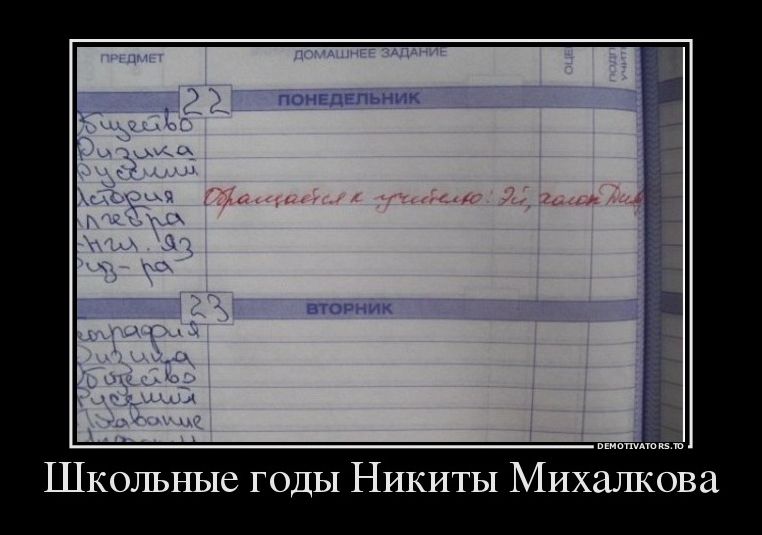 ПРЕДМЕТ ДОМАШНЕЕ ЗАДАНИЕ ОЦЕ ПОДП УЧИТ
22 ПОНЕДЕЛЬНИК
бщество
Физика
Русский
История Обращается к учителю: Эй, холоп
лгебра
нгл. яз
Физ-ра
23 ВТОРНИК
еография
Физика
бщество
Русский
Плавание
DEMOTIVATORS.TO
Школьные годы Никиты Михалкова